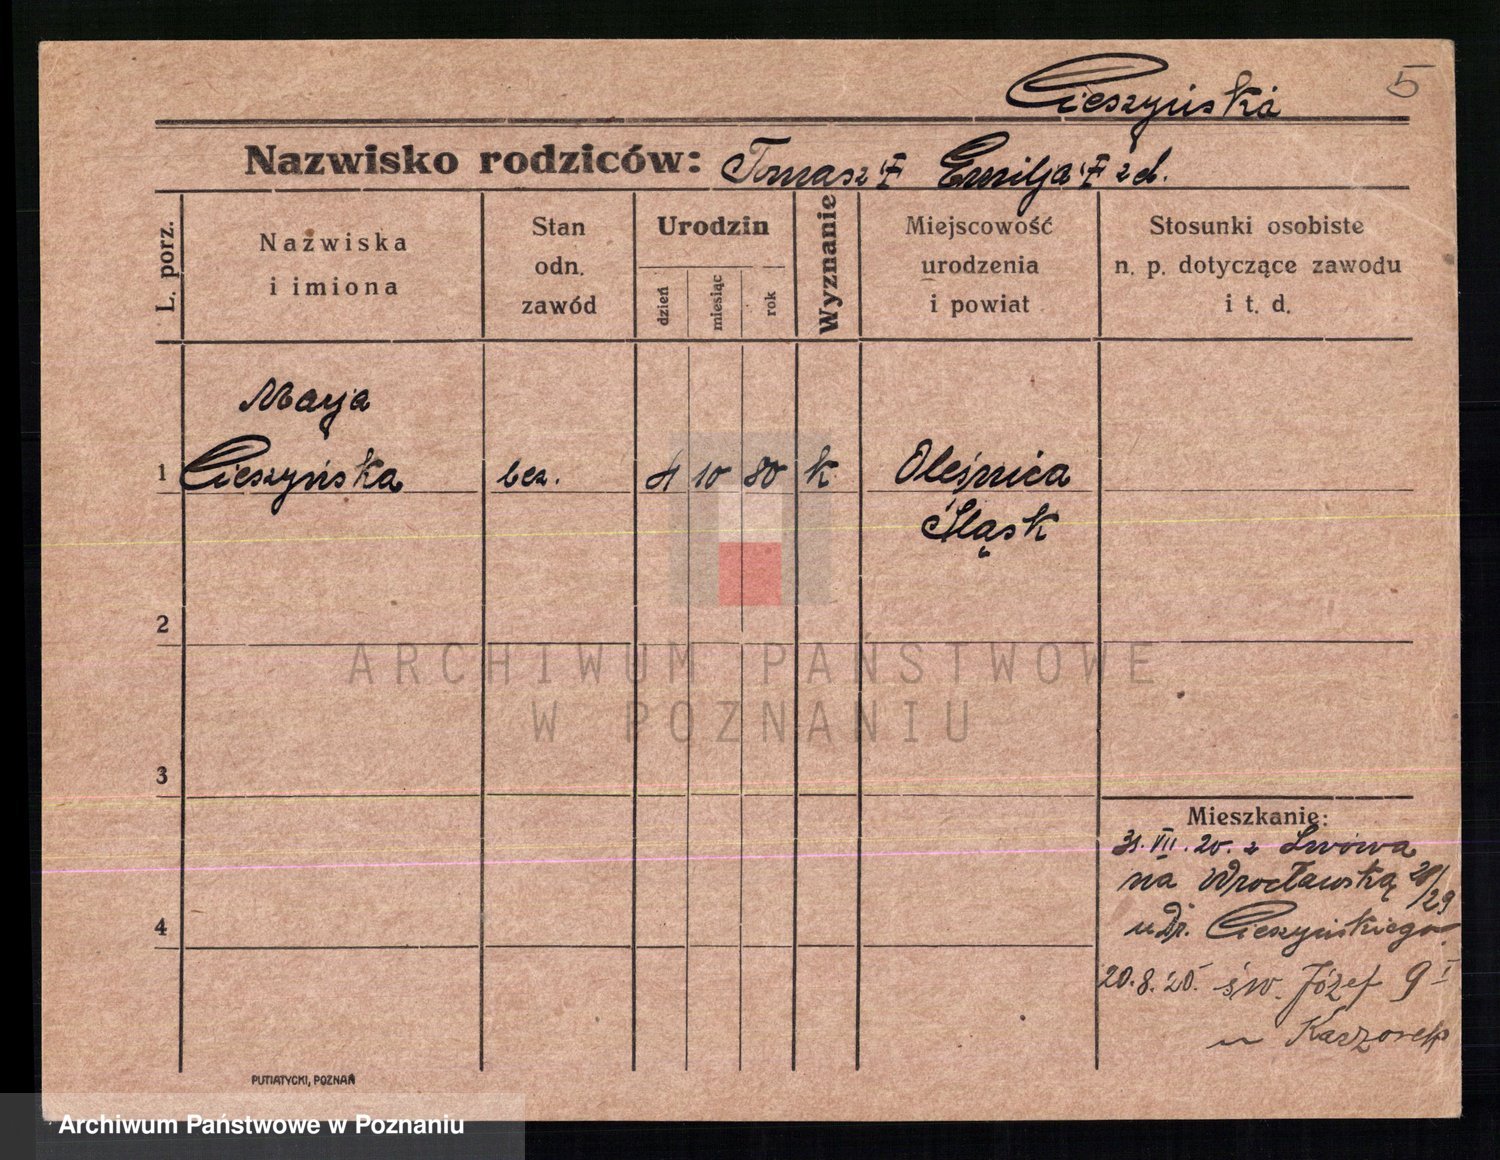 Cieszyńska
5
Nazwisko rodziców: Tomasz Emilja
L. porz.
Nazwiska
i imiona
Stan
odn.
zawód
Urodzin
dzień
miesiąc
rok
Wyznanie
Miejscowość
urodzenia
i powiat
Stosunki osobiste
n. p. dotyczące zawodu
i t. d.
Marja
1 Cieszyńska bez. 4 10 80 k Oleśnica
Śląsk
2
ARCHIWUM PAŃSTWOWE
W POZNANIU
3
4
Mieszkanie:
31.VII.20. z Lwowa
na Wrocławską 28/29
u Dr. Cieszyńskiego
20.8.20. św. Józef 9 I
u Kaczorek
PUTIATYCKI, POZNAŃ
Archiwum Państwowe w Poznaniu